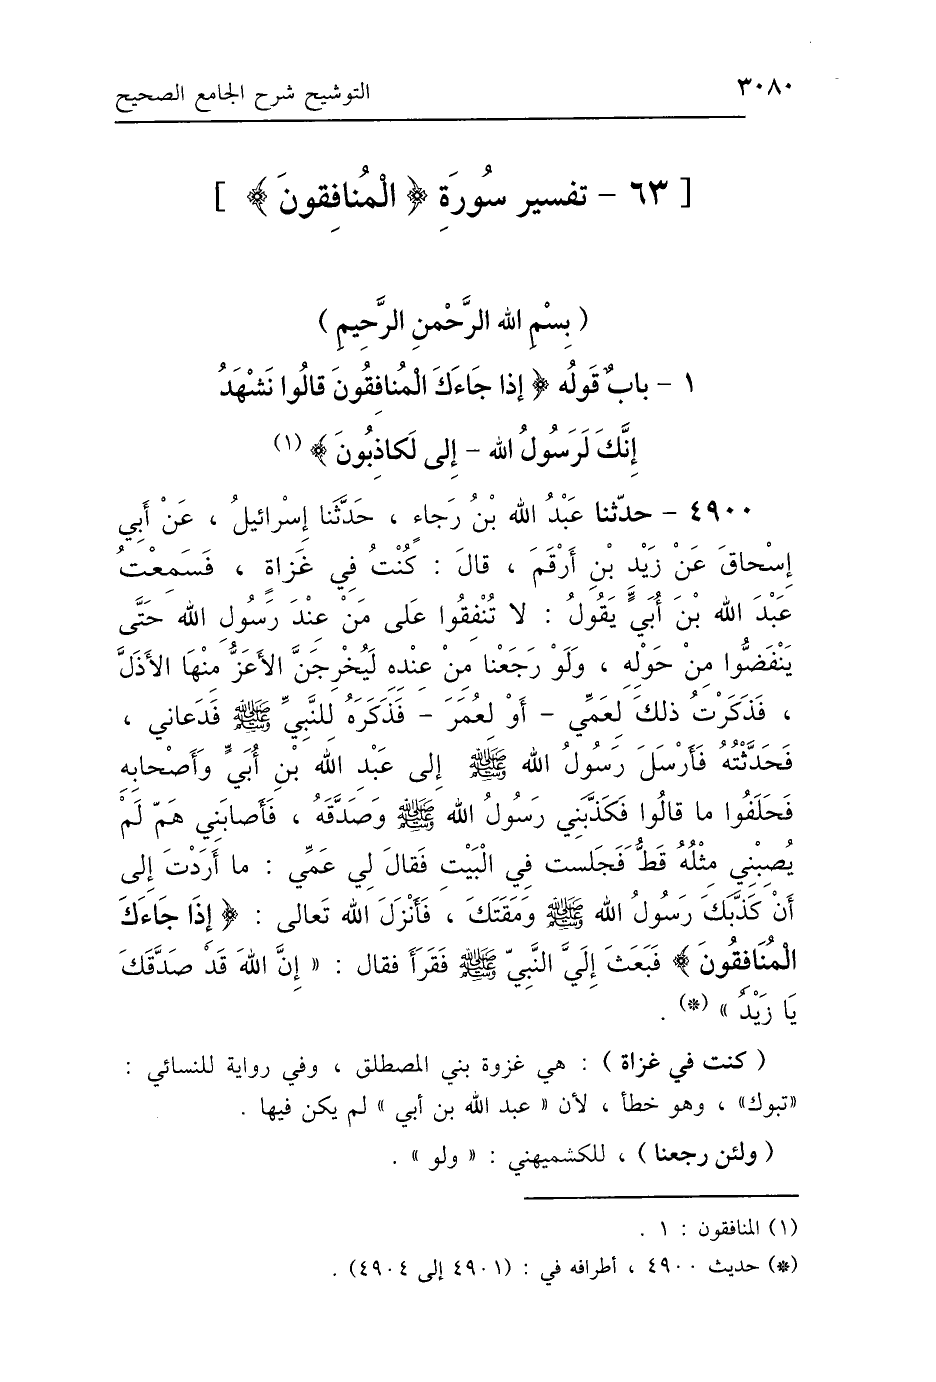 ٣٠٨٠
التوشيح شرح الجامع الصحيح
[ ٦٣ - تفسير سُورَةِ ﴿ الْمُنافِقونَ ﴾ ]
( بِسْمِ الله الرَّحْمنِ الرَّحِيمِ )
١ - بابُ قَوله ﴿ إذا جَاءَكَ الْمُنافِقُونَ قالُوا نَشْهَدُ
إِنَّكَ لَرَسُولُ الله - إلى لَكاذِبُونَ ﴾ (١)
٤٩٠٠ - حدّثنا عَبْدُ الله بْنُ رَجَاءٍ ، حَدَّثَنا إسْرائيلُ ، عَنْ أَبي
إسْحاقَ عَنْ زَيْدِ بْنِ أَرْقَمَ ، قالَ : كُنْتُ فِي غَزاةٍ ، فَسَمِعْتُ
عَبْدَ الله بْنَ أُبَيٍّ يَقُولُ : لا تُنْفِقُوا عَلى مَنْ عِنْدَ رَسُولِ الله حَتَّى
يَنْفَضُّوا مِنْ حَوْلِهِ ، وَلَوْ رَجَعْنا مِنْ عِنْدِهِ لَيُخْرِجَنَّ الأعَزُّ مِنْهَا الأذَلَّ
، فَذَكَرْتُ ذلكَ لِعَمِّي - أَوْ لِعُمَرَ - فَذَكَرَهُ لِلنَّبِيِّ ﷺ فَدَعاني ،
فَحَدَّثْتُهُ فَأَرْسَلَ رَسُولُ الله ﷺ إلى عَبْدِ الله بْنِ أُبَيٍّ وَأَصْحابِهِ
فَحَلَفُوا ما قالُوا فَكَذَّبَنِي رَسُولُ الله ﷺ وَصَدَّقَهُ ، فَأَصابَنِي هَمّ لَمْ
يُصِبْنِي مِثْلُهُ قَطُّ فَجَلَست فِي الْبَيْتِ فَقالَ لِي عَمِّي : ما أَرَدْتَ إلى
أَنْ كَذَّبَكَ رَسُولُ الله ﷺ وَمَقَتَكَ ، فَأَنْزَلَ الله تَعالى : ﴿ إذَا جاءَكَ
الْمُنَافِقُونَ ﴾ فَبَعَثَ إلَيَّ النَّبِيّ ﷺ فَقَرَأَ فقال : « إنَّ اللهَ قَدْ صَدَّقَكَ
يَا زَيْدُ » (*) .
( كنت في غزاة ) : هي غزوة بني المصطلق ، وفي رواية للنسائي :
«تبوك» ، وهو خطأ ، لأن « عبد الله بن أبي » لم يكن فيها .
( ولئن رجعنا ) ، للكشميهني : « ولو » .
(١) المنافقون : ١ .
(*) حديث ٤٩٠٠ ، أطرافه في : (٤٩٠١ إلى ٤٩٠٤) .